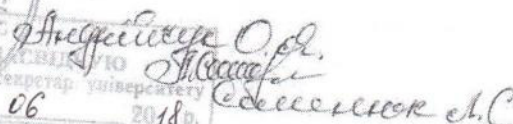 Андрійчук О.Я.
ЗАСВІДЧУЮ
секретар університету
Семенюк Л.С
06 2018 р.